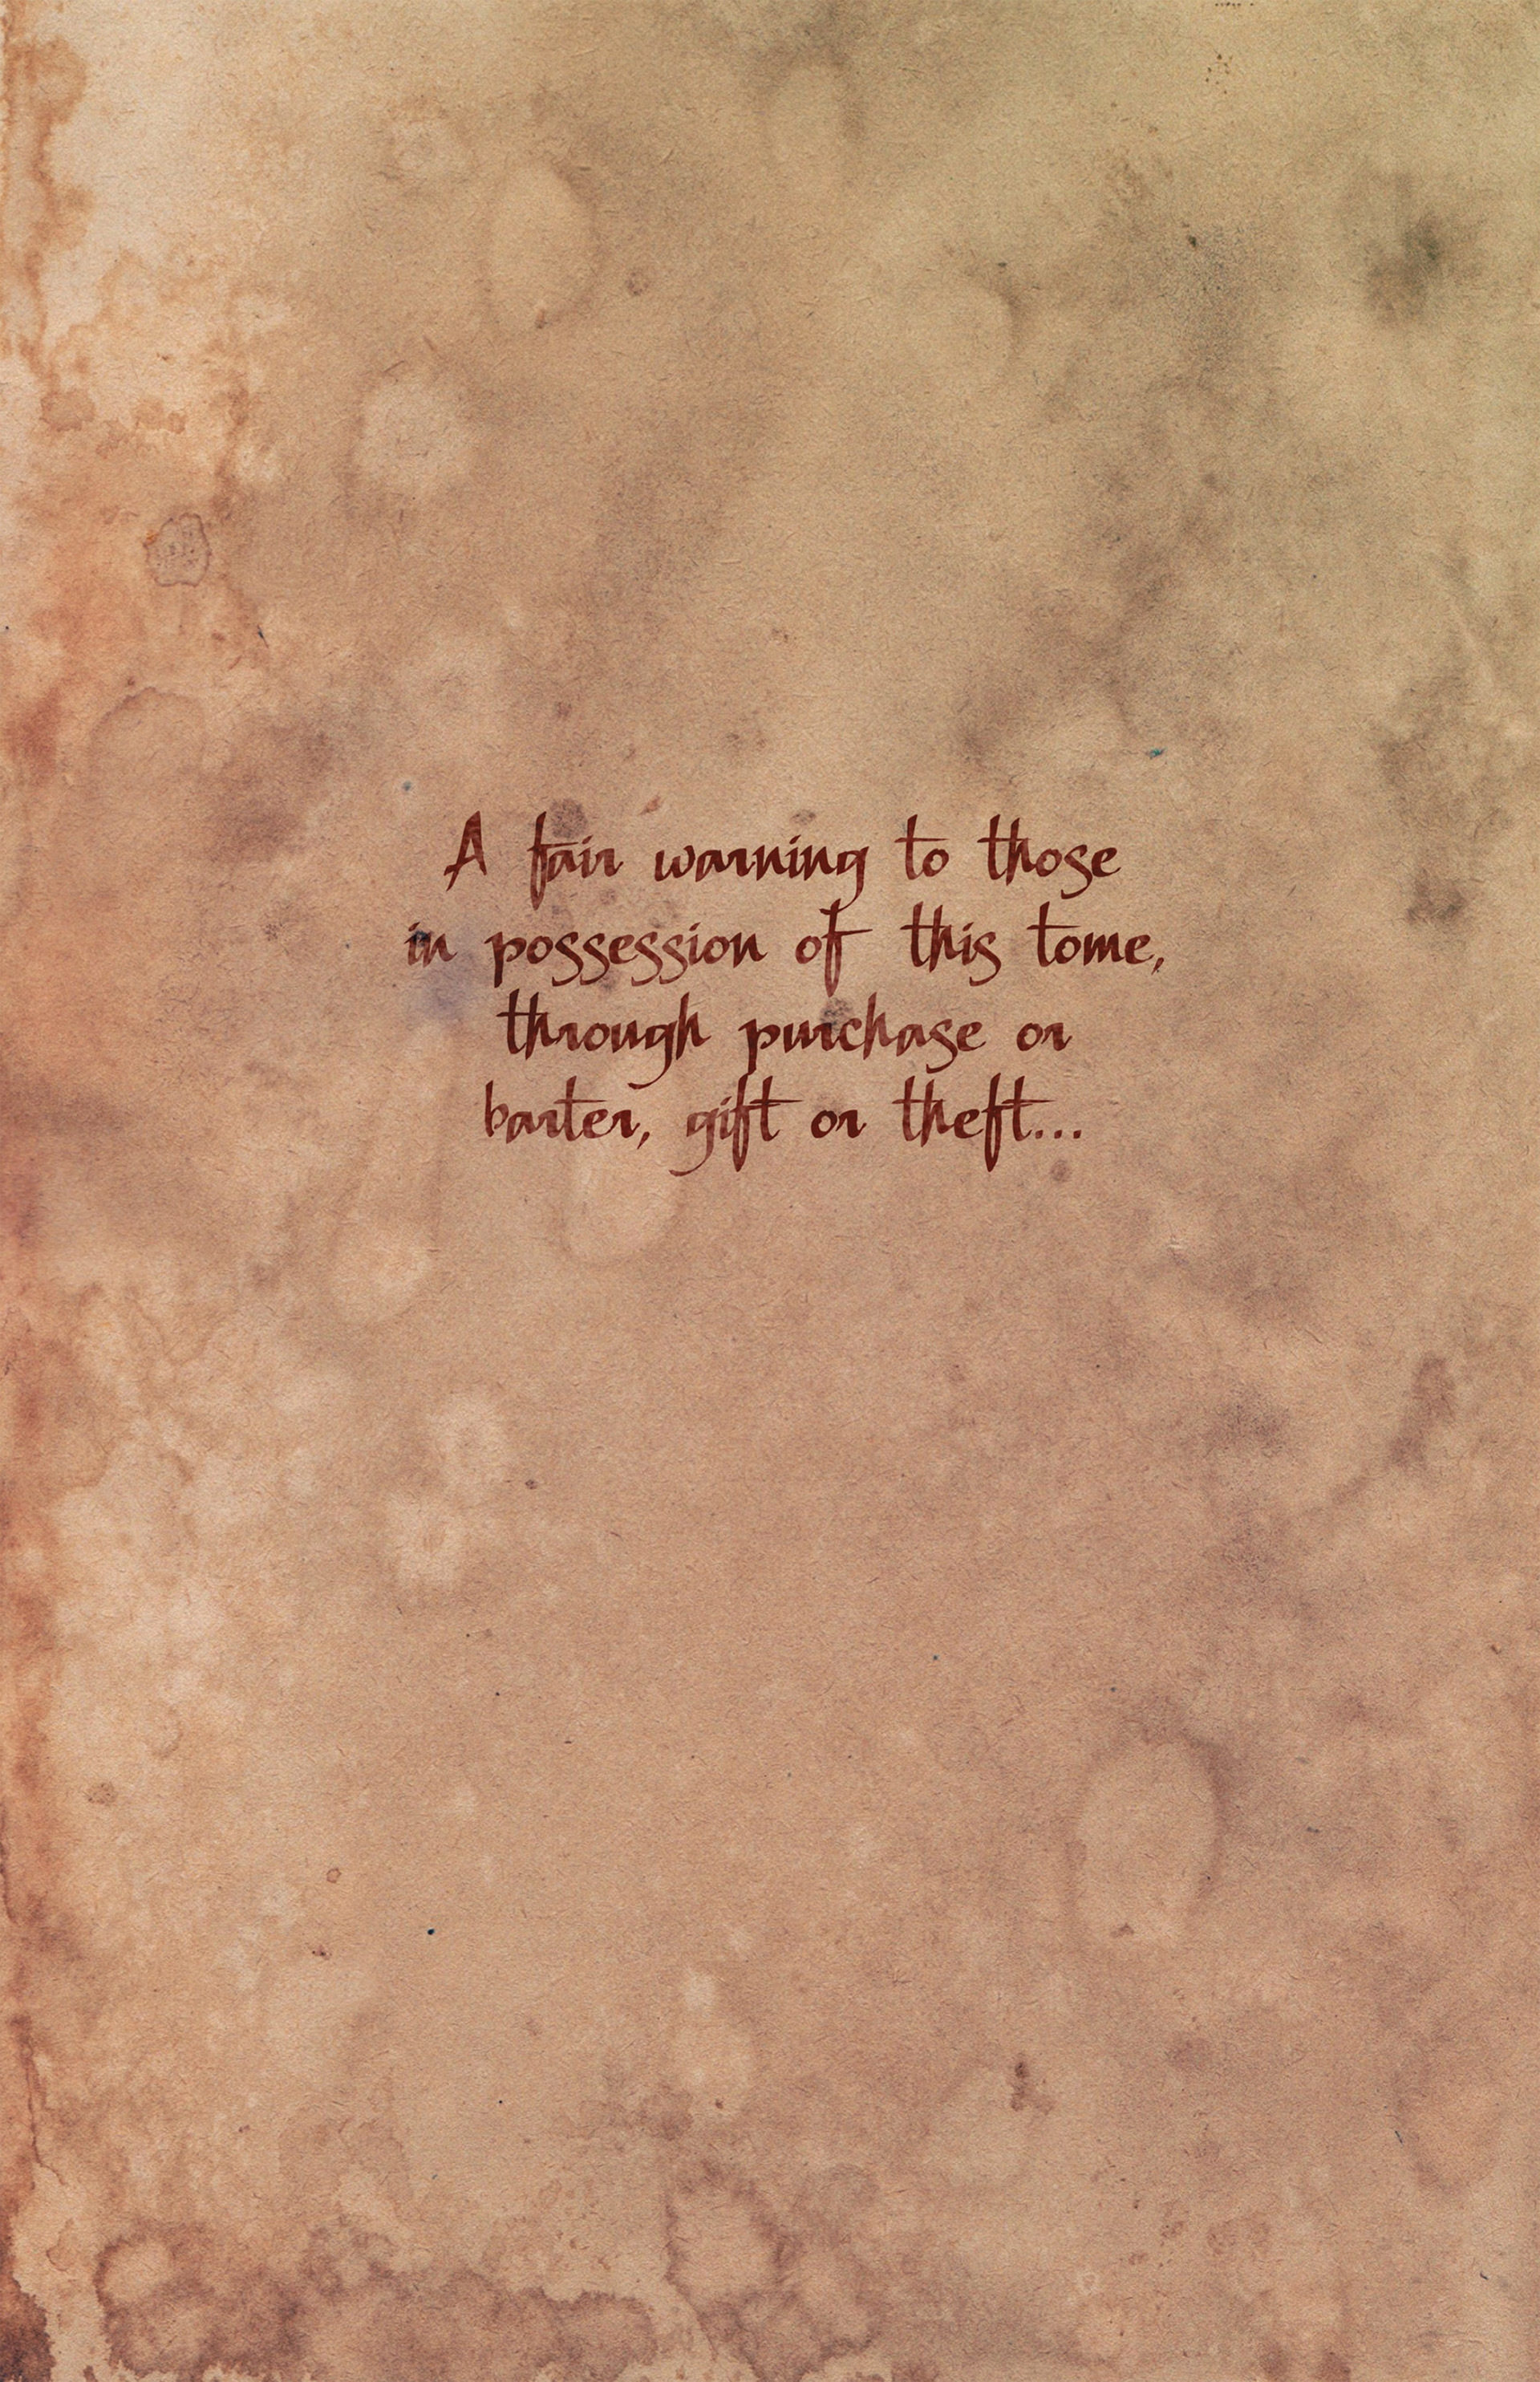 A fair warning to those
in possession of this tome,
through purchase or
barter, gift or theft...